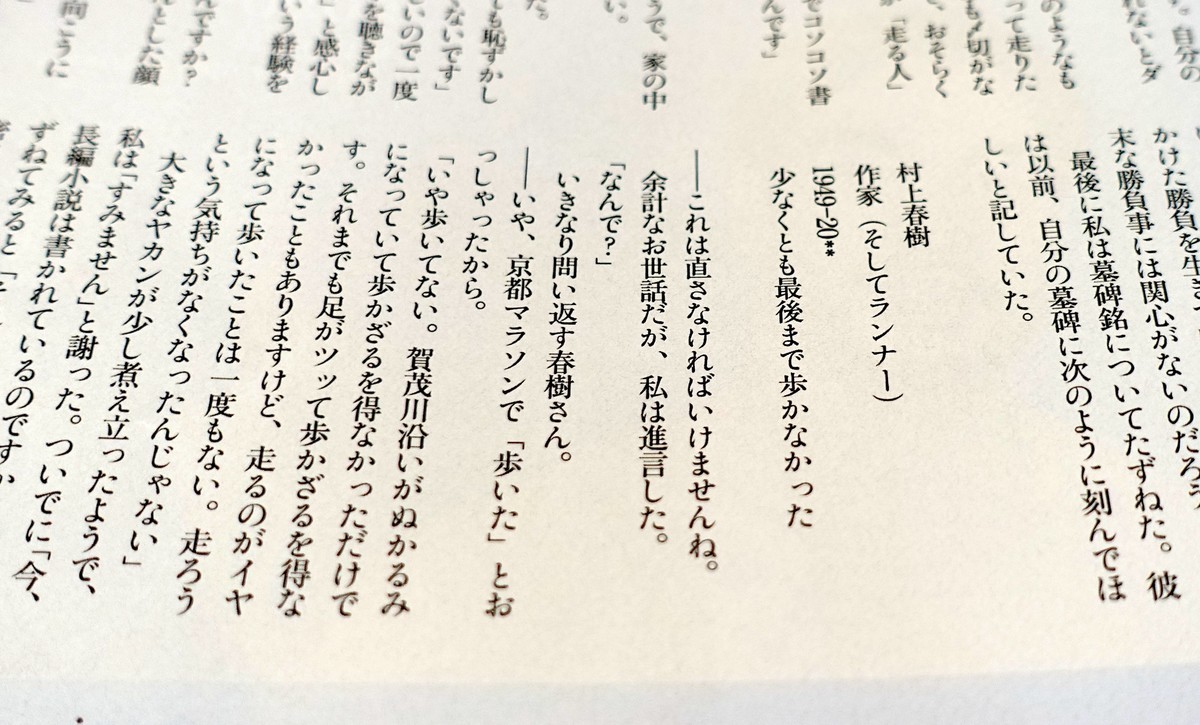 た。自分の
れないとダ
のようなも
って走りた
も〆切がな
、おそらく
「走る人」
でコソコソ書
んです」
うで、家の中
い。
た。
も恥ずかし
ないです」
いので一度
を聴きなが
」と感心し
いう経験を
んですか？
んとした顔
向こうに
かけた勝負を生き
末な勝負事には関心がないのだろう
最後に私は墓碑銘についてたずねた。彼
は以前、自分の墓碑に次のように刻んでほ
しいと記していた。
村上春樹
作家（そしてランナー）
1949-20**
少なくとも最後まで歩かなかった
――これは直さなければいけませんね。
余計なお世話だが、私は進言した。
「なんで？」
いきなり問い返す春樹さん。
――いや、京都マラソンで「歩いた」とお
っしゃったから。
「いや歩いてない。賀茂川沿いがぬかるみ
になっていて歩かざるを得なかっただけで
す。それまでも足がツッて歩かざるを得な
かったこともありますけど、走るのがイヤ
になって歩いたことは一度もない。走ろう
という気持ちがなくなったんじゃない」
大きなヤカンが少し煮え立ったようで、
私は「すみません」と謝った。ついでに「今、
長編小説は書かれているのですか
ずねてみると「